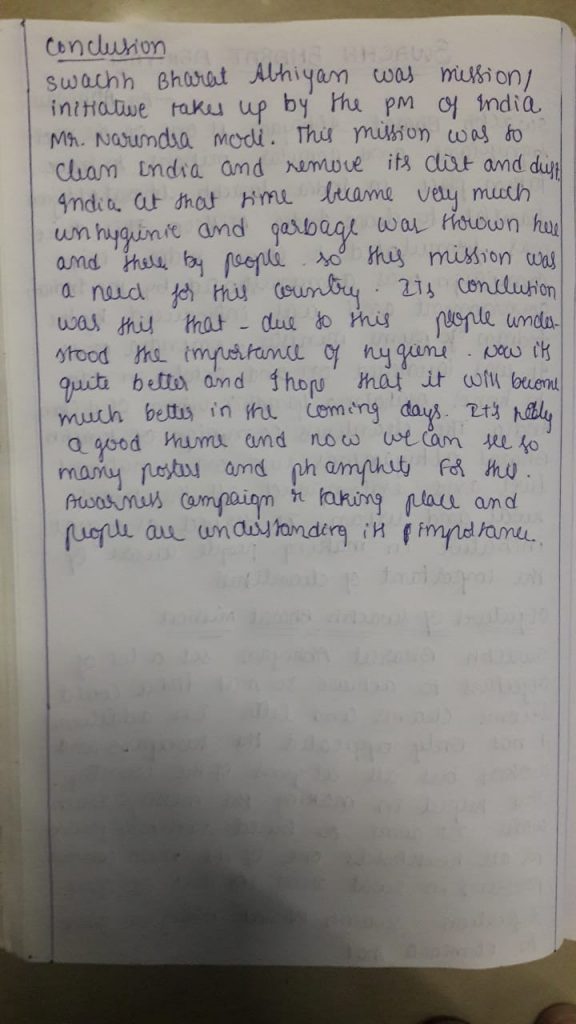 Conclusion
Swachh Bharat Abhiyan was mission/
initiative takes up by the PM of India
Mr. Narendra Modi. This mission was to
clean India and remove its dirt and dust.
India at that time became very much
unhygienic and garbage was thrown here
and there by people. so this mission was
a need for this country. Its conclusion
was this that - due to this people under-
stood the importance of hygiene. Now its
quite better and I hope that it will become
much better in the coming days. It's
a good theme and now we can see so
many posters and phamphets for this.
Awarness campaign taking place and
people are understanding its importance.